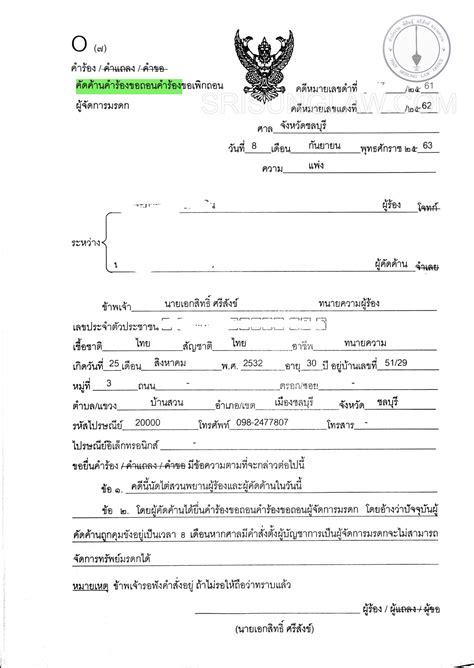 O (๗)
คำร้อง / คำแถลง / คำขอ
คัดค้านคำร้องขอถอนคำร้องขอเพิกถอน
ผู้จัดการมรดก
คดีหมายเลขดำที่ /๒๕ 61
คดีหมายเลขแดงที่ /๒๕ 62
SRISUNGLAW.COM
ศาล จังหวัดชลบุรี
วันที่ 8 เดือน กันยายน พุทธศักราช ๒๕ 63
ความ แพ่ง
ผู้ร้อง โจทก์
ระหว่าง
ผู้คัดค้าน จำเลย
ข้าพเจ้า นายเอกสิทธิ์ ศรีสังข์ ทนายความผู้ร้อง
เลขประจำตัวประชาชน
เชื้อชาติ ไทย สัญชาติ ไทย อาชีพ ทนายความ
เกิดวันที่ 25 เดือน สิงหาคม พ.ศ. 2532 อายุ 30 ปี อยู่บ้านเลขที่ 51/29
หมู่ที่ 3 ถนน - ตรอก/ซอย -
ตำบล/แขวง บ้านสวน อำเภอ/เขต เมืองชลบุรี จังหวัด ชลบุรี
รหัสไปรษณีย์ 20000 โทรศัพท์ 098-2477807 โทรสาร -
ไปรษณีย์อิเล็กทรอนิกส์ -
ขอยื่นคำร้อง / คำแถลง / คำขอ มีข้อความตามที่จะกล่าวต่อไปนี้
ข้อ ๑. คดีนี้นัดไต่สวนพยานผู้ร้องและผู้คัดค้านในวันนี้
ข้อ ๒. โดยผู้คัดค้านได้ยื่นคำร้องขอถอนคำร้องขอถอนผู้จัดการมรดก โดยอ้างว่าปัจจุบันผู้
คัดค้านถูกคุมขังอยู่เป็นเวลา 8 เดือนหากศาลมีคำสั่งตั้งผู้บัญชาการเป็นผู้จัดการมรดกจะไม่สามารถ
จัดการทรัพย์มรดกได้
หมายเหตุ ข้าพเจ้ารอฟังคำสั่งอยู่ ถ้าไม่รอให้ถือว่าทราบแล้ว
ผู้ร้อง / ผู้แถลง / ผู้ขอ
(นายเอกสิทธิ์ ศรีสังข์)